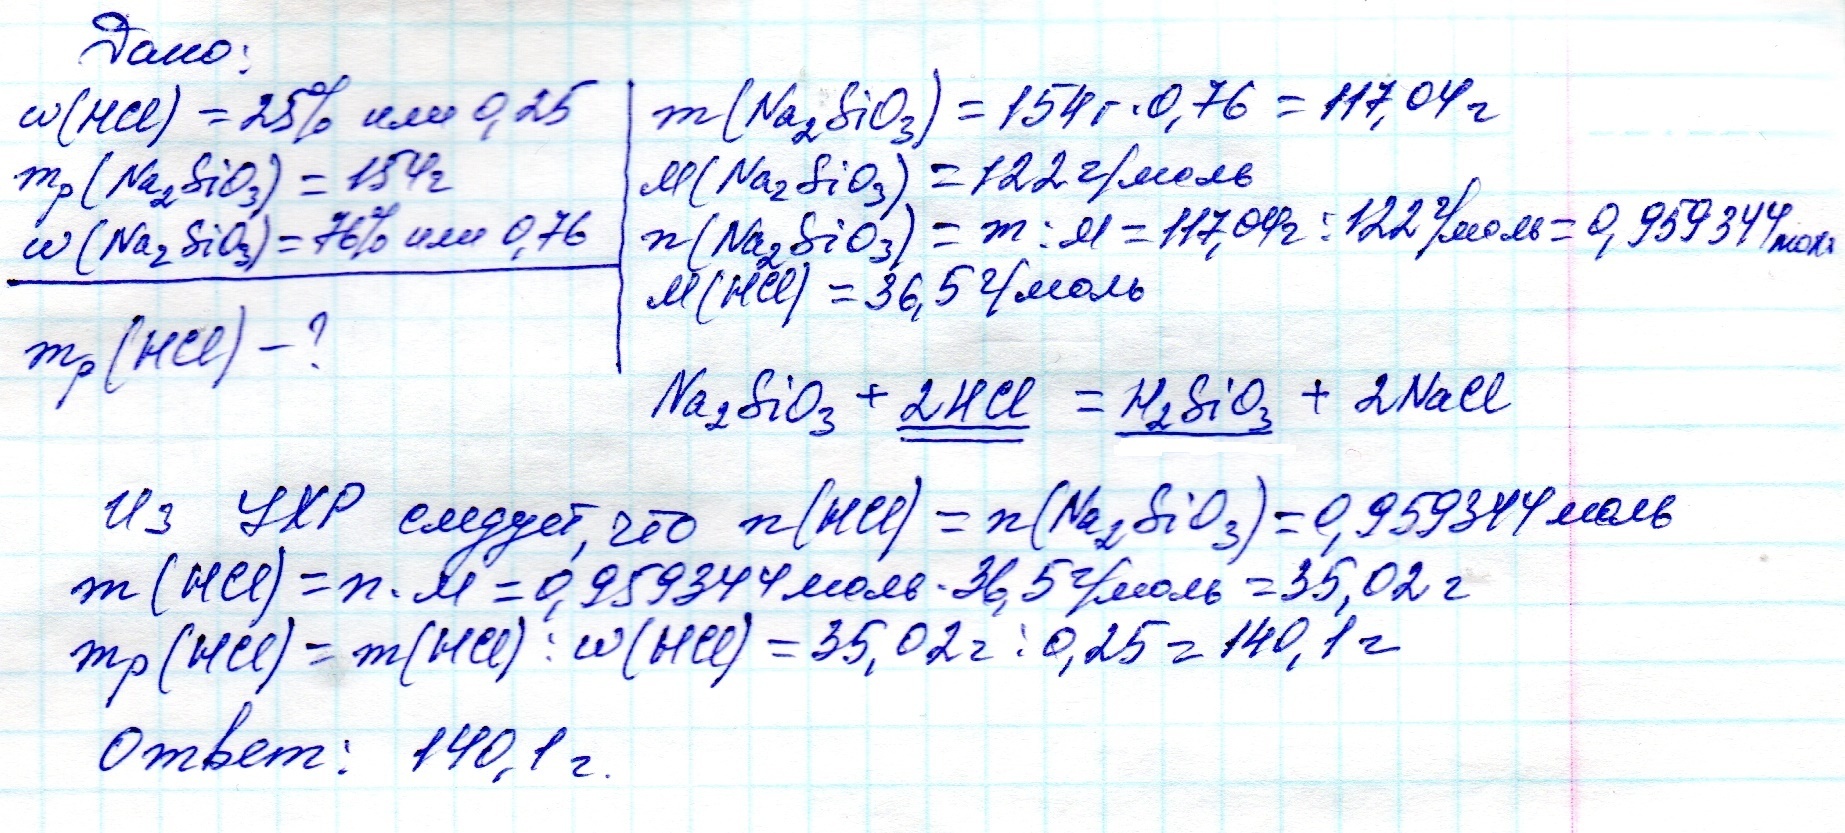 Дано:
w(HCl) = 25% или 0,25
mр(Na₂SiO₃) = 154г
w(Na₂SiO₃) = 76% или 0,76
mр(HCl) – ?
m(Na₂SiO₃) = 154г·0,76 = 117,04г
M(Na₂SiO₃) = 122г/моль
n(Na₂SiO₃) = m : M = 117,04г : 122г/моль = 0,959344моль
M(HCl) = 36,5г/моль
Na₂SiO₃ + 2HCl = H₂SiO₃ + 2NaCl
Из УХР следует, что n(HCl) = n(Na₂SiO₃) = 0,959344моль
m(HCl) = n·M = 0,959344моль·36,5г/моль = 35,02г
mр(HCl) = m(HCl) : w(HCl) = 35,02г : 0,25 = 140,1г
Ответ: 140,1г.